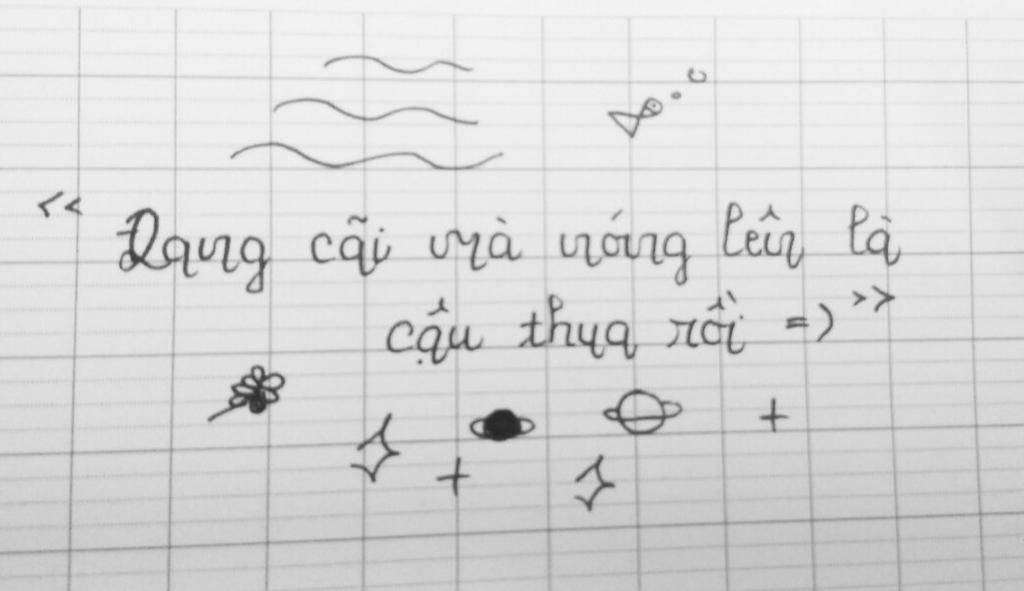 << Đang cãi mà nóng lên là
cậu thua rồi =) >>